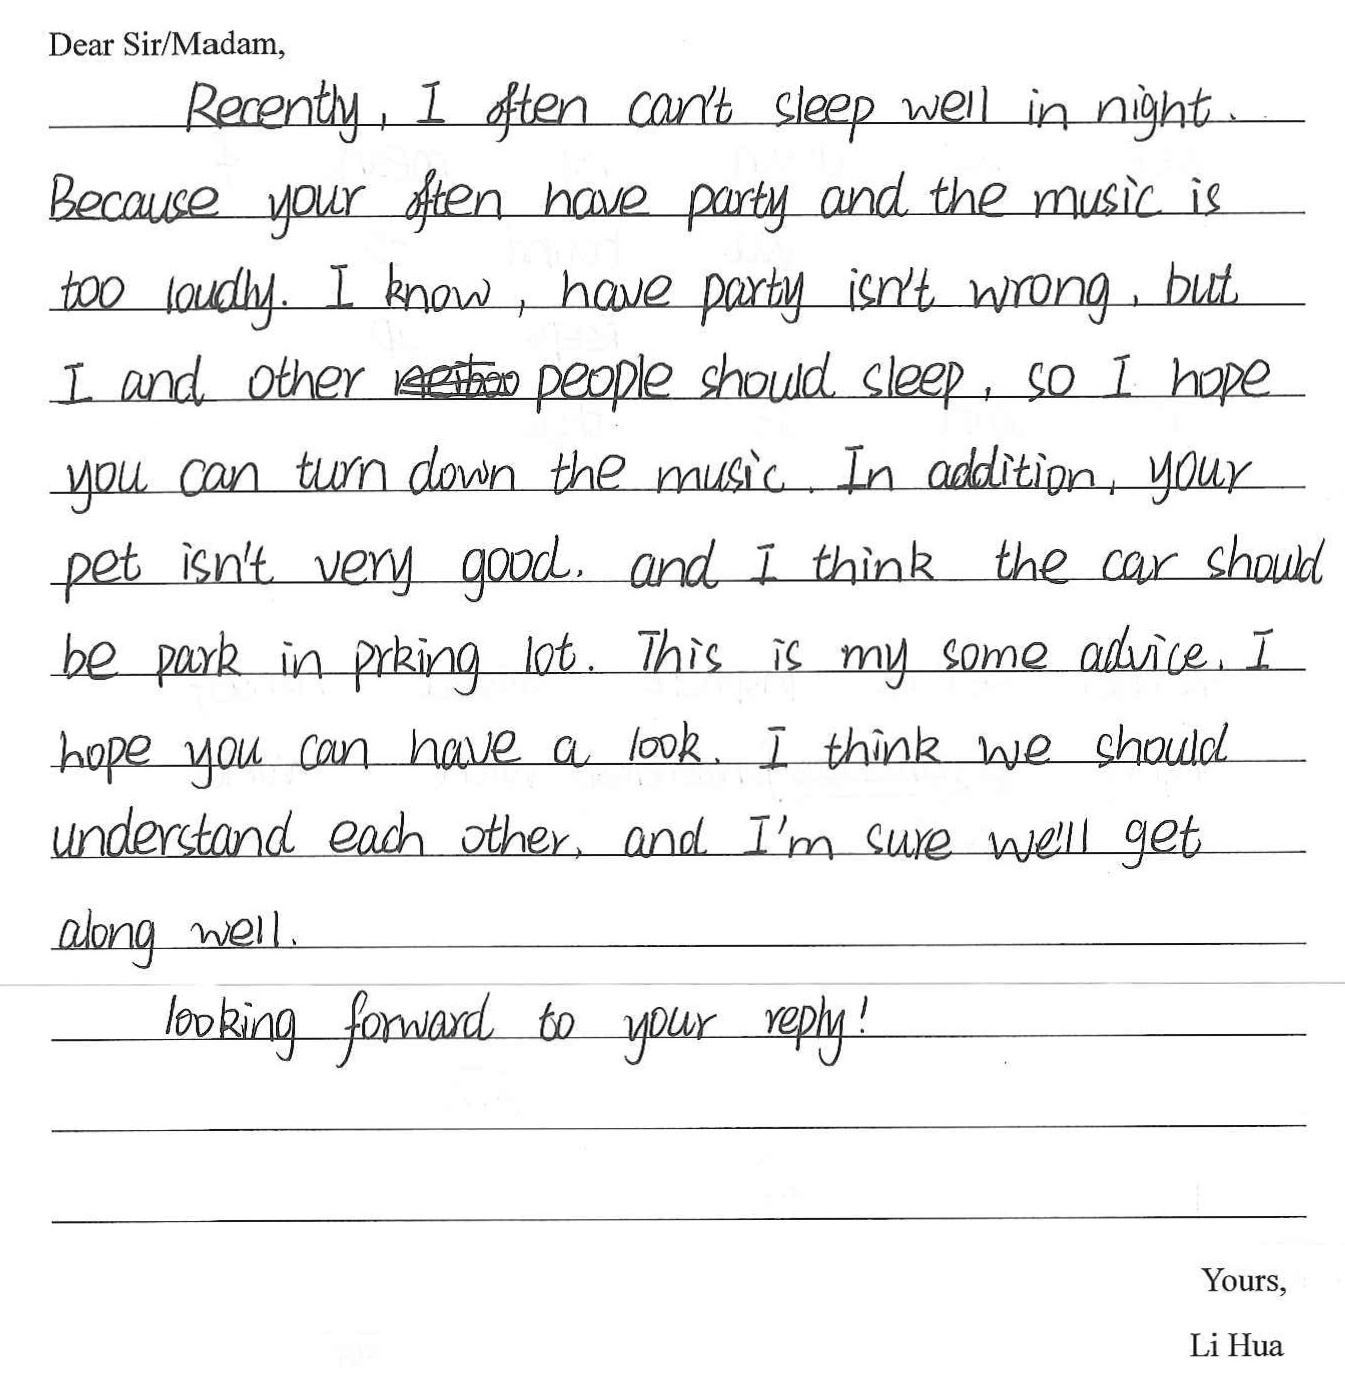 Dear Sir/Madam,
Recently, I often can't sleep well in night.
Because your often have party and the music is
too loudly. I know, have party isn't wrong, but
I and other people should sleep, so I hope
you can turn down the music. In addition, your
pet isn't very good. and I think the car should
be park in prking lot. This is my some advice. I
hope you can have a look. I think we should
understand each other, and I'm sure we'll get
along well.
looking forward to your reply!
Yours,
Li Hua